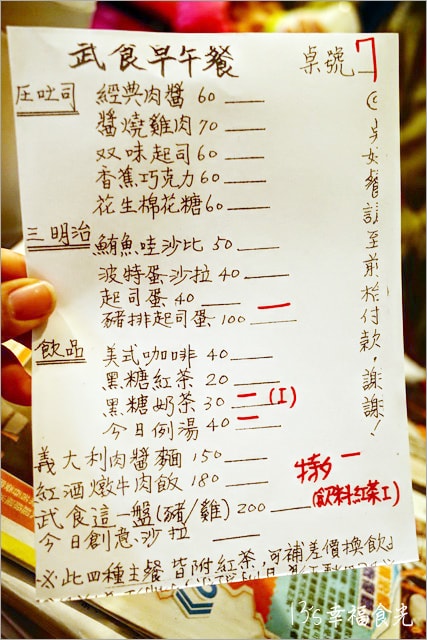 武食早午餐
桌號 7
圧吐司
經典肉醬 60
醬燒雞肉 70
双味起司 60
香蕉巧克力 60
花生棉花糖 60
三明治
鮪魚哇沙比 50
波特蛋沙拉 40
起司蛋 40
豬排起司蛋 100 一
飲品
美式咖啡 40
黑糖紅茶 20
黑糖奶茶 30 二 (I)
今日例湯 40 一
義大利肉醬麵 150
紅酒燉牛肉飯 180
武食這一盤(豬/雞) 200
今日創意沙拉
特夕 一
(飲料紅茶I)
※此四種主餐 皆附紅茶,可補差價換飲
點好餐請至前檯付款,謝謝!
13's幸福食光